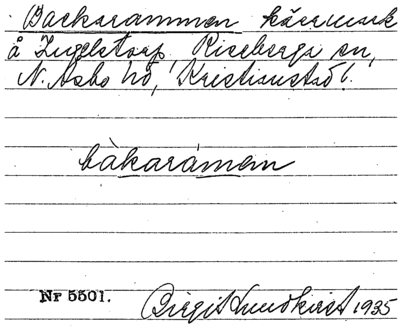 Backarammen kärrmark
å Ingelstorp, Riseberga sn,
N. Åsbo hd, Kristianstad l.
bàkarámən
Nr 5501.
Birgit Lundkvist 1935